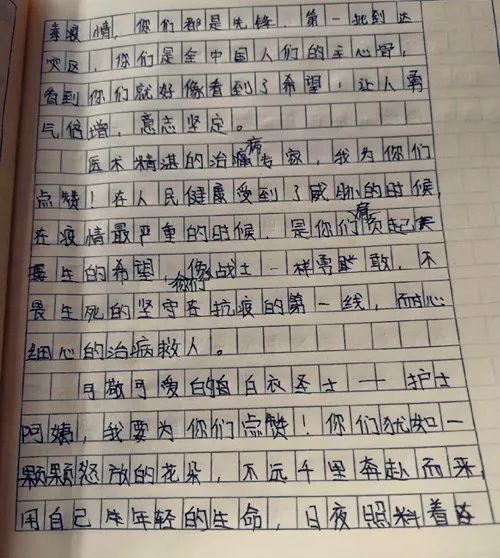 毒疫情，你们都是先锋，第一批到达
灾区，你们是全中国人们的主心骨，
看到你们就好像看到了希望，让人勇
气倍增，意志坚定。
医术精湛的治病专家，我为你们
点赞！在人民健康受到了威胁的时候，
在疫情最严重的时候，是你们肩负起
生的希望，你们像战士一样勇敢，不
畏生死的坚守在抗疫的第一线，耐心
细心的治病救人。
可敬可爱的白衣圣士——护士
阿姨，我要为你们点赞！你们犹如一
颗颗怒放的花朵，不远千里奔赴而来，
用自己年轻的生命，日夜照料着